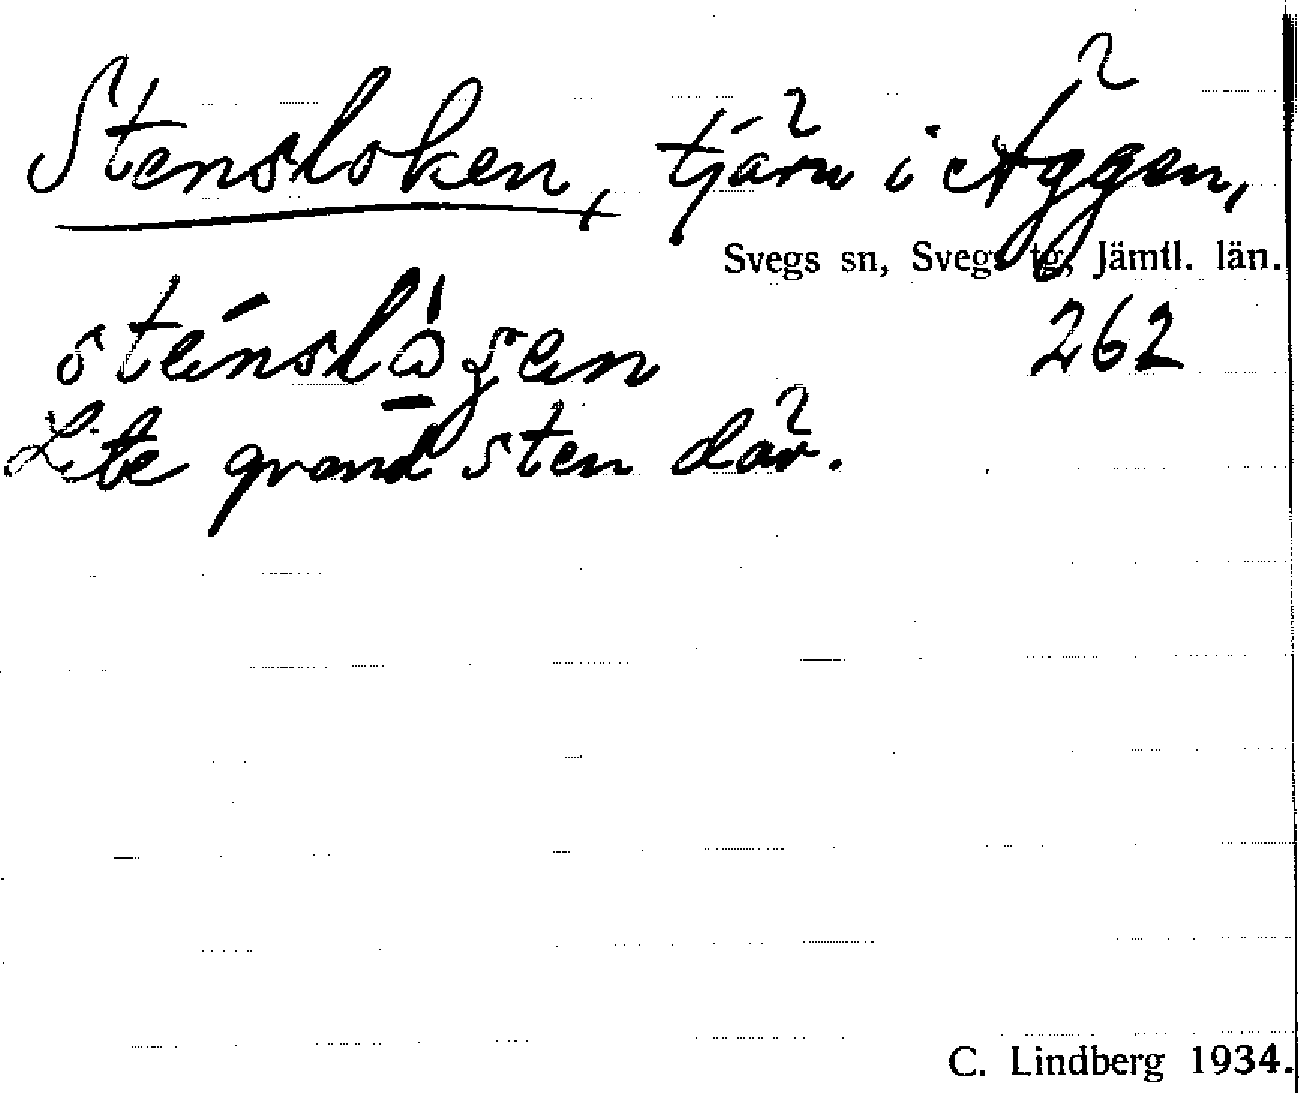 Stensloken, tjärn i Äggen,
Svegs sn, Svegs tg, Jämtl. län.
262
Lite grand sten där.
C. Lindberg 1934.